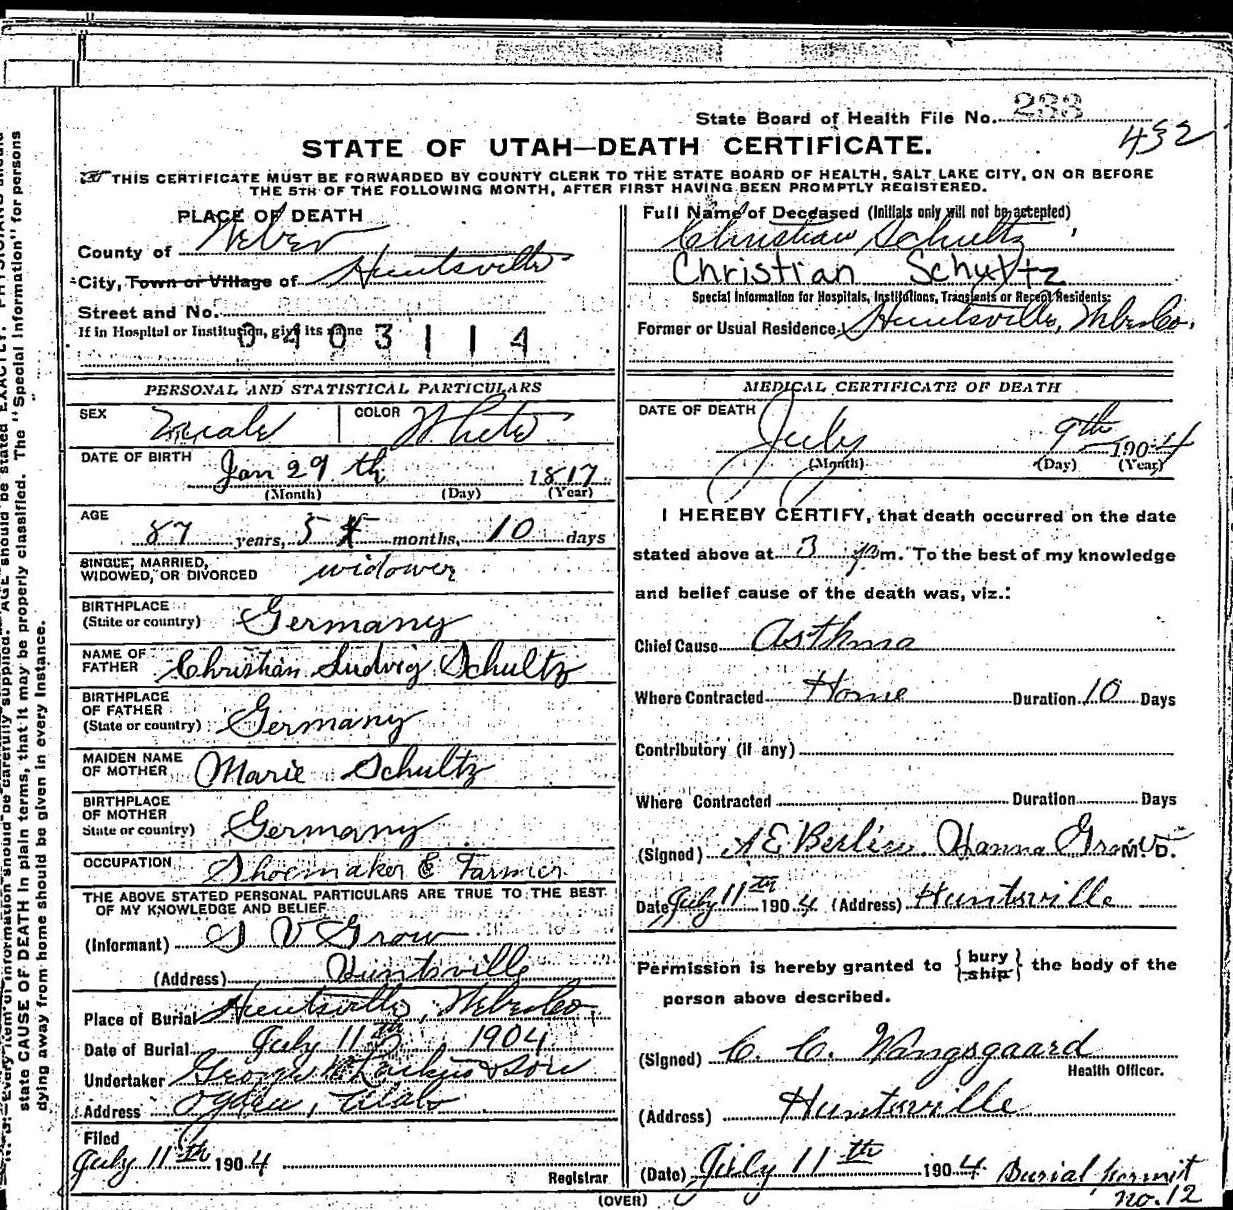 State Board of Health File No. 233
432
STATE OF UTAH—DEATH CERTIFICATE.
THIS CERTIFICATE MUST BE FORWARDED BY COUNTY CLERK TO THE STATE BOARD OF HEALTH, SALT LAKE CITY, ON OR BEFORE
THE 5TH OF THE FOLLOWING MONTH, AFTER FIRST HAVING BEEN PROMPTLY REGISTERED.
PLACE OF DEATH
County of Weber
City, Town or Village of Huntsville
Street and No.
If in Hospital or Institution, give its name
0403114
Full Name of Deceased (Initials only will not be accepted)
Christian Schultz
Christian Schultz
Special Information for Hospitals, Institutions, Transients or Recent Residents:
Former or Usual Residence Huntsville, Weber Co.
PERSONAL AND STATISTICAL PARTICULARS
SEX Male COLOR White
DATE OF BIRTH
Jan 29th 1817
(Month) (Day) (Year)
AGE
87 years, 5 4 months, 10 days
SINGLE, MARRIED,
WIDOWED, OR DIVORCED widower
BIRTHPLACE
(State or country) Germany
NAME OF
FATHER Christian Ludwig Schultz
BIRTHPLACE
OF FATHER
(State or country) Germany
MAIDEN NAME
OF MOTHER Marie Schultz
BIRTHPLACE
OF MOTHER
State or country) Germany
OCCUPATION Shoemaker & Farmer
THE ABOVE STATED PERSONAL PARTICULARS ARE TRUE TO THE BEST
OF MY KNOWLEDGE AND BELIEF
(Informant) S V Grow
(Address) Huntsville
Place of Burial Huntsville, Weber Co.
Date of Burial July 11th 1904
Undertaker George Larkin & Son
Address Ogden, Utah
Filed
July 11th 1904
Registrar
MEDICAL CERTIFICATE OF DEATH
DATE OF DEATH
July 9th 1904
(Month) (Day) (Year)
I HEREBY CERTIFY, that death occurred on the date
stated above at 3 p m. To the best of my knowledge
and belief cause of the death was, viz.:
Chief Cause Asthma
Where Contracted Home Duration 10 Days
Contributory (if any)
Where Contracted Duration Days
(Signed) A E Berlin. Hanna Grow M. D.
Date July 11th 1904 (Address) Huntsville
Permission is hereby granted to {bury
ship} the body of the
person above described.
(Signed) C. C. Wangsgaard
Health Officer.
(Address) Huntsville
(Date) July 11th 1904 Burial Permit
No. 12
(OVER)
state CAUSE OF DEATH in plain terms, that it may be properly classified. The "Special Information" for persons
dying away from home should be given in every instance.